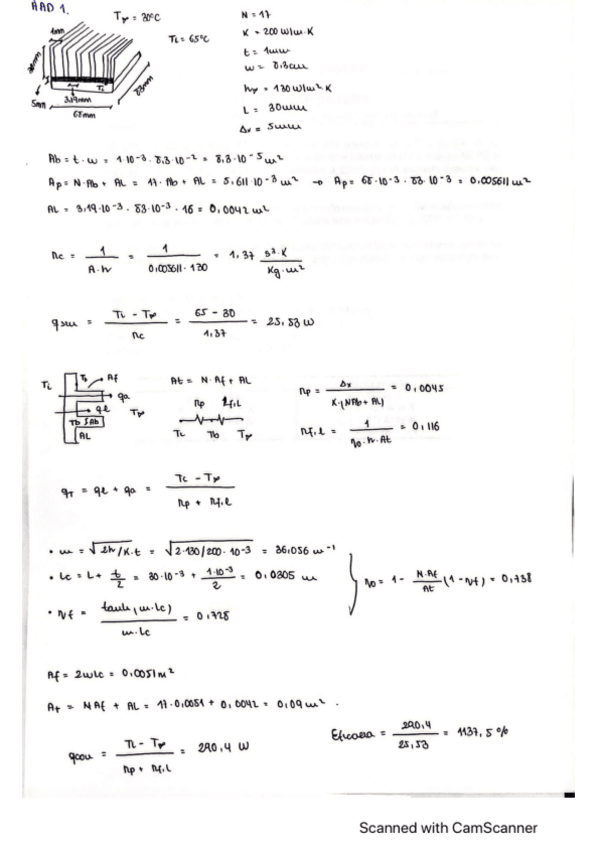 HAD 1.
T∞ = 30°C
TL = 65°C
N = 17
K = 200 W/m·K
t = 1mm
w = 8,3cm
h∞ = 130 W/m² K
L = 30mm
Δx = 5mm
5mm
3,19mm
TL
68mm
83mm
Ab = t · w = 1·10⁻³ · 8,3·10⁻² = 8,3·10⁻⁵ m²
Ap = N·Ab + AL = 17·Ab + AL = 5,611·10⁻³ m² → Ap = 68·10⁻³ · 83·10⁻³ = 0,005611 m²
AL = 3,19·10⁻³ · 83·10⁻³ · 16 = 0,0042 m²
Rc = 1 / A·h = 1 / 0,005611·130 = 1,37 s³·K / Kg·m²
qsin = TL − T∞ / Rc = 65 − 30 / 1,37 = 25,53 W
TL
Af
qa
ql
T∞
Tb
Ab
AL
At = N·Af + AL
Rp Rf,L
TL Tb T∞
Rp = Δx / K·(NAb + AL) = 0,0045
Rf,L = 1 / η0·h·At = 0,116
qT = ql + qa = TL − T∞ / Rp + Rf,L
• m = √2h/K·t = √2·130/200·10⁻³ = 36,056 m⁻¹
• Lc = L + t/2 = 30·10⁻³ + 1·10⁻³/2 = 0,0305 m
• ηf = tanh(m·Lc) / m·Lc = 0,728
η0 = 1 − N·Af/At (1 − ηf) = 0,738
Af = 2wLc = 0,0051m²
AT = NAf + AL = 17·0,0051 + 0,0042 = 0,09 m².
qcon = TL − T∞ / Rp + Rf,L = 290,4 W
Eficacia = 290,4 / 25,53 = 1137,5 %
Scanned with CamScanner